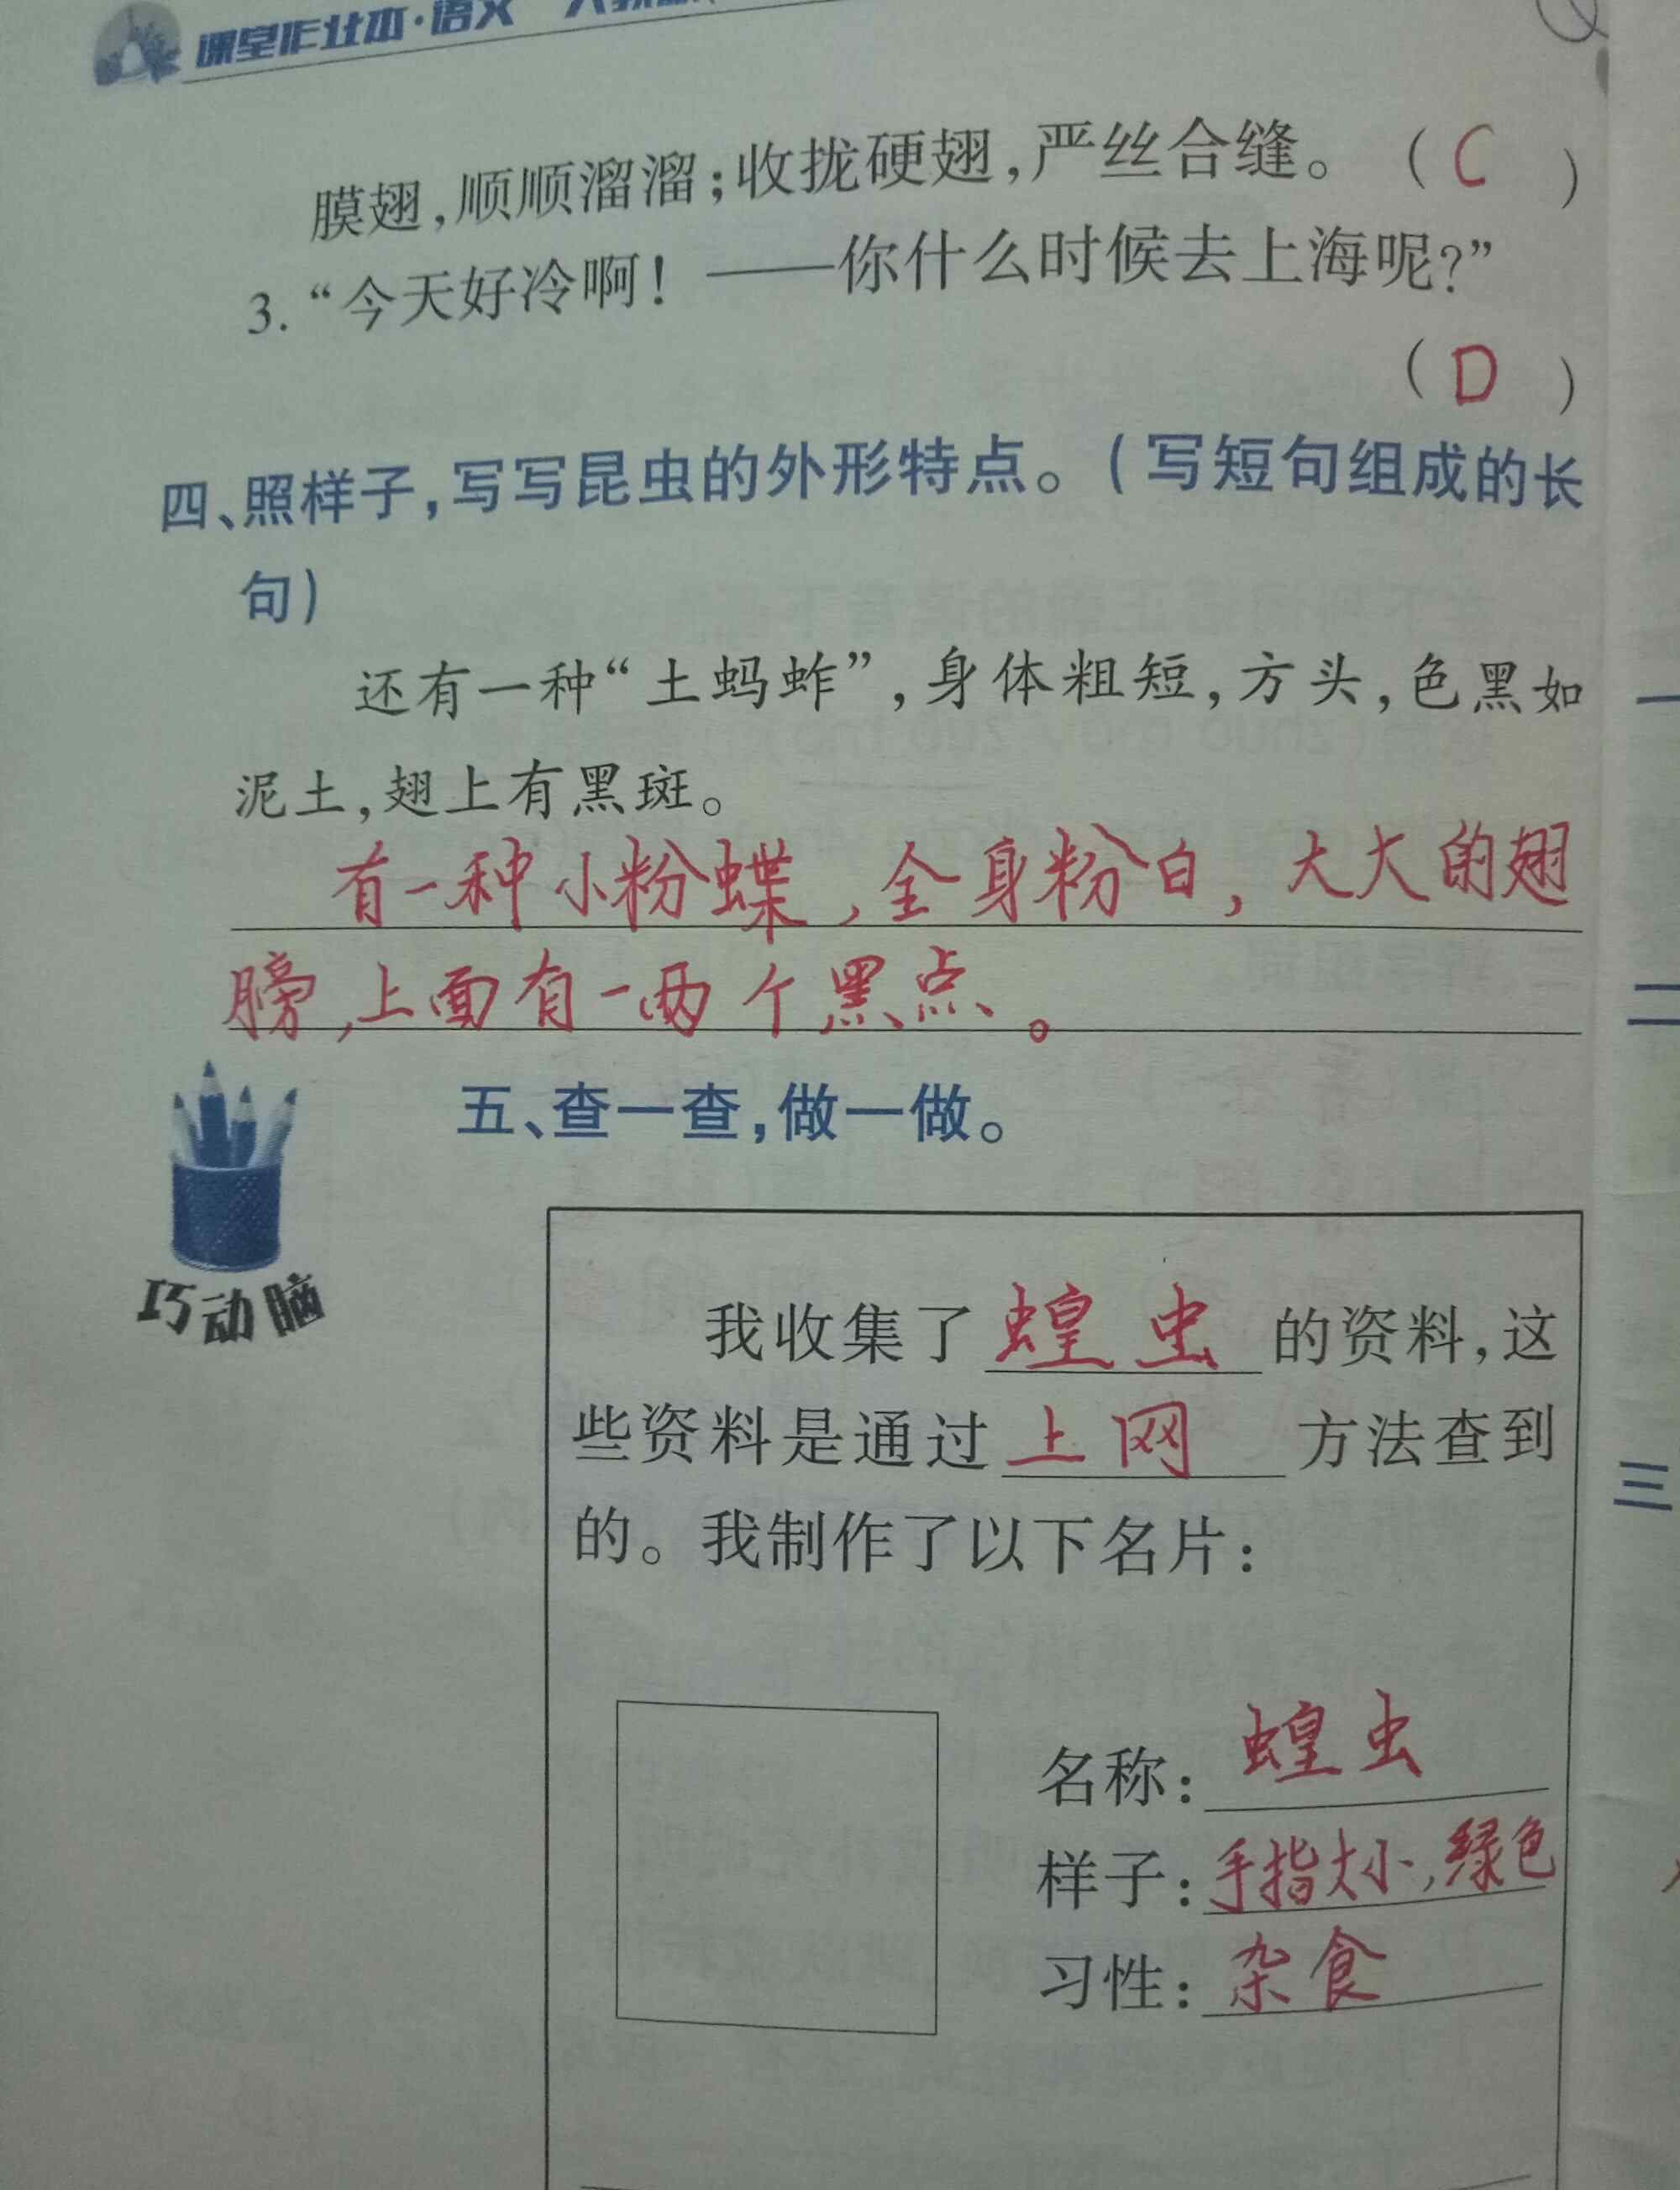 课堂作业本·语文
膜翅,顺顺溜溜;收拢硬翅,严丝合缝。(C)
3.“今天好冷啊!——你什么时候去上海呢?”
(D)
四、照样子,写写昆虫的外形特点。(写短句组成的长
句)
还有一种“土蚂蚱”,身体粗短,方头,色黑如
泥土,翅上有黑斑。
有一种小粉蝶,全身粉白,大大的翅
膀,上面有一两个黑点。
五、查一查,做一做。
巧动脑
我收集了蝗虫的资料,这
些资料是通过上网方法查到
的。我制作了以下名片:
名称:蝗虫
样子:手指大小,绿色
习性:杂食
一
二
三